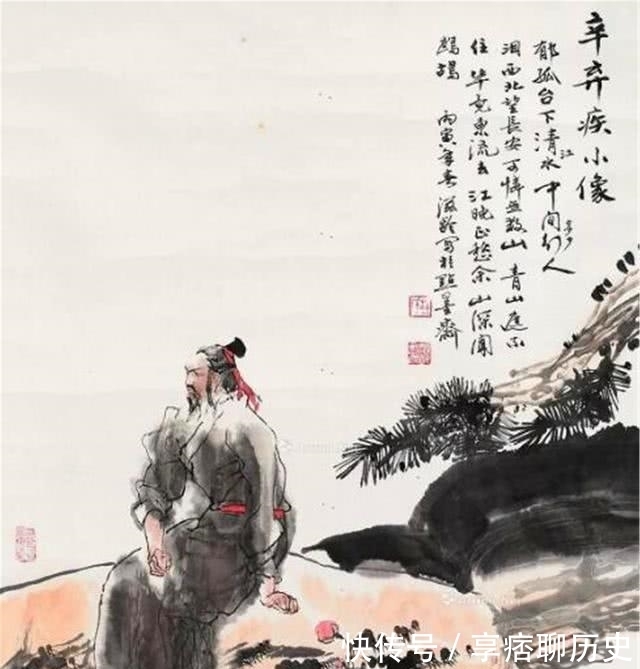 辛弃疾小像
郁孤台下清江水中间多少行人
泪西北望長安可憐無数山 青山遮不
住毕竟東流去江晚正愁余山深闻
鹧鸪 丙寅年春滋龄写於點墨齋
快传号 / 享痞聊历史